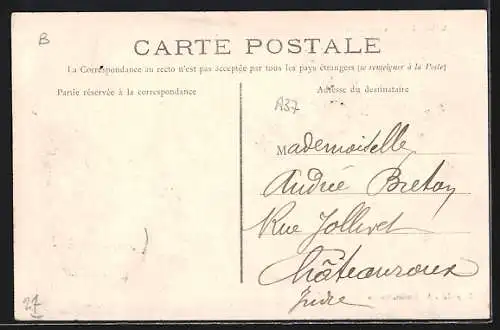 B
CARTE POSTALE
La Correspondance au recto n'est pas acceptée par tous les pays étrangers (se renseigner à la Poste)
Partie réservée à la correspondance
Adresse du destinataire
A37
Mademoiselle
Andrée Breton
Rue Jollivet
Châteauroux
Indre
27